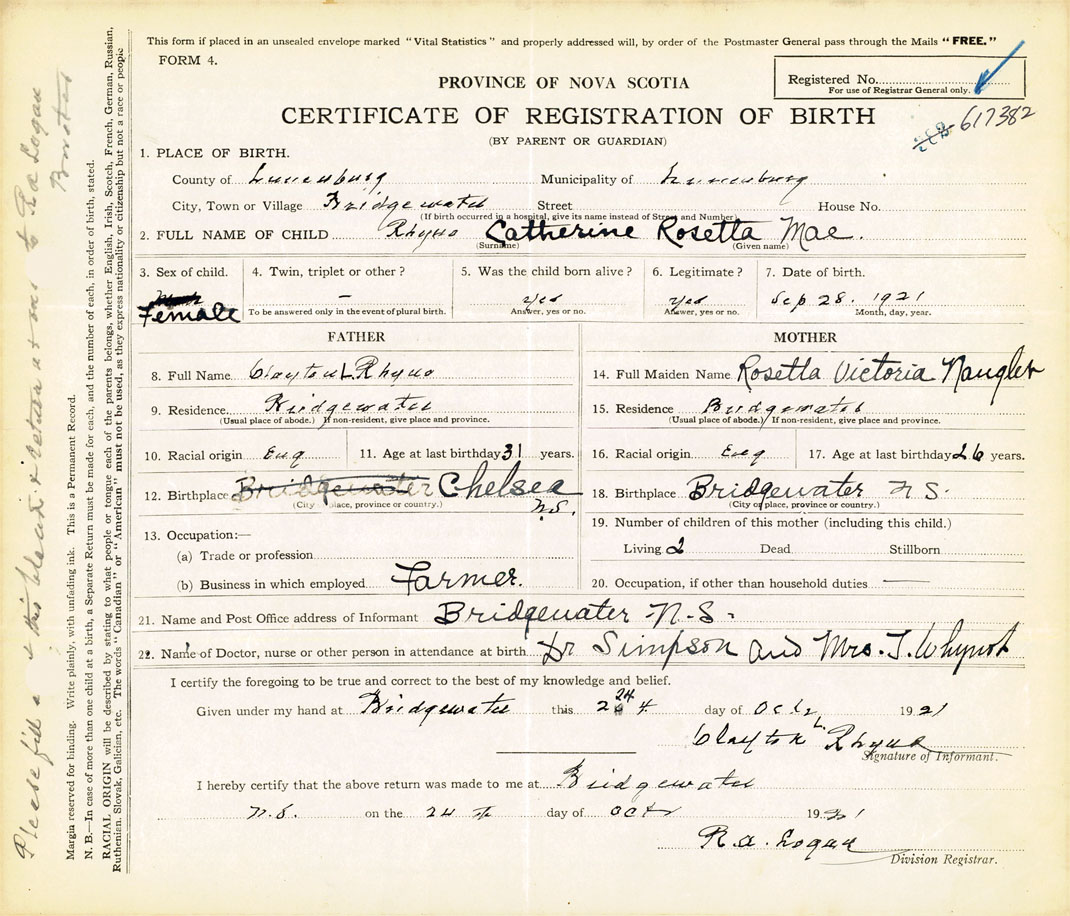 This form if placed in an unsealed envelope marked "Vital Statistics" and properly addressed will, by order of the Postmaster General pass through the Mails "FREE."
FORM 4.
Registered No.
For use of Registrar General only.
617382
PROVINCE OF NOVA SCOTIA
CERTIFICATE OF REGISTRATION OF BIRTH
(BY PARENT OR GUARDIAN)
1. PLACE OF BIRTH.
County of Lunenburg Municipality of Lunenburg
City, Town or Village Bridgewater Street House No.
(If birth occurred in a hospital, give its name instead of Street and Number)
2. FULL NAME OF CHILD Rhyno Catherine Rosetta Mae.
(Surname) (Given name)
3. Sex of child. 4. Twin, triplet or other? 5. Was the child born alive? 6. Legitimate? 7. Date of birth.
Female – Yes Yes Sep 28. 1921
To be answered only in the event of plural birth. Answer, yes or no. Answer, yes or no. Month, day, year.
FATHER
8. Full Name Clayton L Rhyno
9. Residence Bridgewater
(Usual place of abode.) If non-resident, give place and province.
10. Racial origin Eng 11. Age at last birthday 31 years.
12. Birthplace Bridgewater Chelsea N.S.
(City or place, province or country.)
13. Occupation:—
(a) Trade or profession
(b) Business in which employed Farmer.
MOTHER
14. Full Maiden Name Rosetta Victoria Naugler
15. Residence Bridgewater
(Usual place of abode.) If non-resident, give place and province.
16. Racial origin Eng 17. Age at last birthday 26 years.
18. Birthplace Bridgewater N S.
(City or place, province or country.)
19. Number of children of this mother (including this child.)
Living 2 Dead Stillborn
20. Occupation, if other than household duties —
21. Name and Post Office address of Informant Bridgewater N.S.
22. Name of Doctor, nurse or other person in attendance at birth Dr Simpson and Mrs. J. Whynot
I certify the foregoing to be true and correct to the best of my knowledge and belief.
Given under my hand at Bridgewater this 24 day of Oct 1921
Clayton L. Rhyno
Signature of Informant.
I hereby certify that the above return was made to me at Bridgewater
N.S. on the 24 th day of Oct 1921
R. A. Logan
Division Registrar.
Margin reserved for binding. Write plainly, with unfading ink. This is a Permanent Record.
N. B.—In case of more than one child at a birth, a Separate Return must be made for each, and the number of each, in order of birth, stated.
RACIAL ORIGIN will be described by stating to what people or tongue each of the parents belongs, whether English, Irish, Scotch, French, German, Russian,
Ruthenian, Slovak, Galician, etc. The words "Canadian" or "American" must not be used, as they express nationality or citizenship but not a race or people
Please fill in this blank & return at once to R a Logan